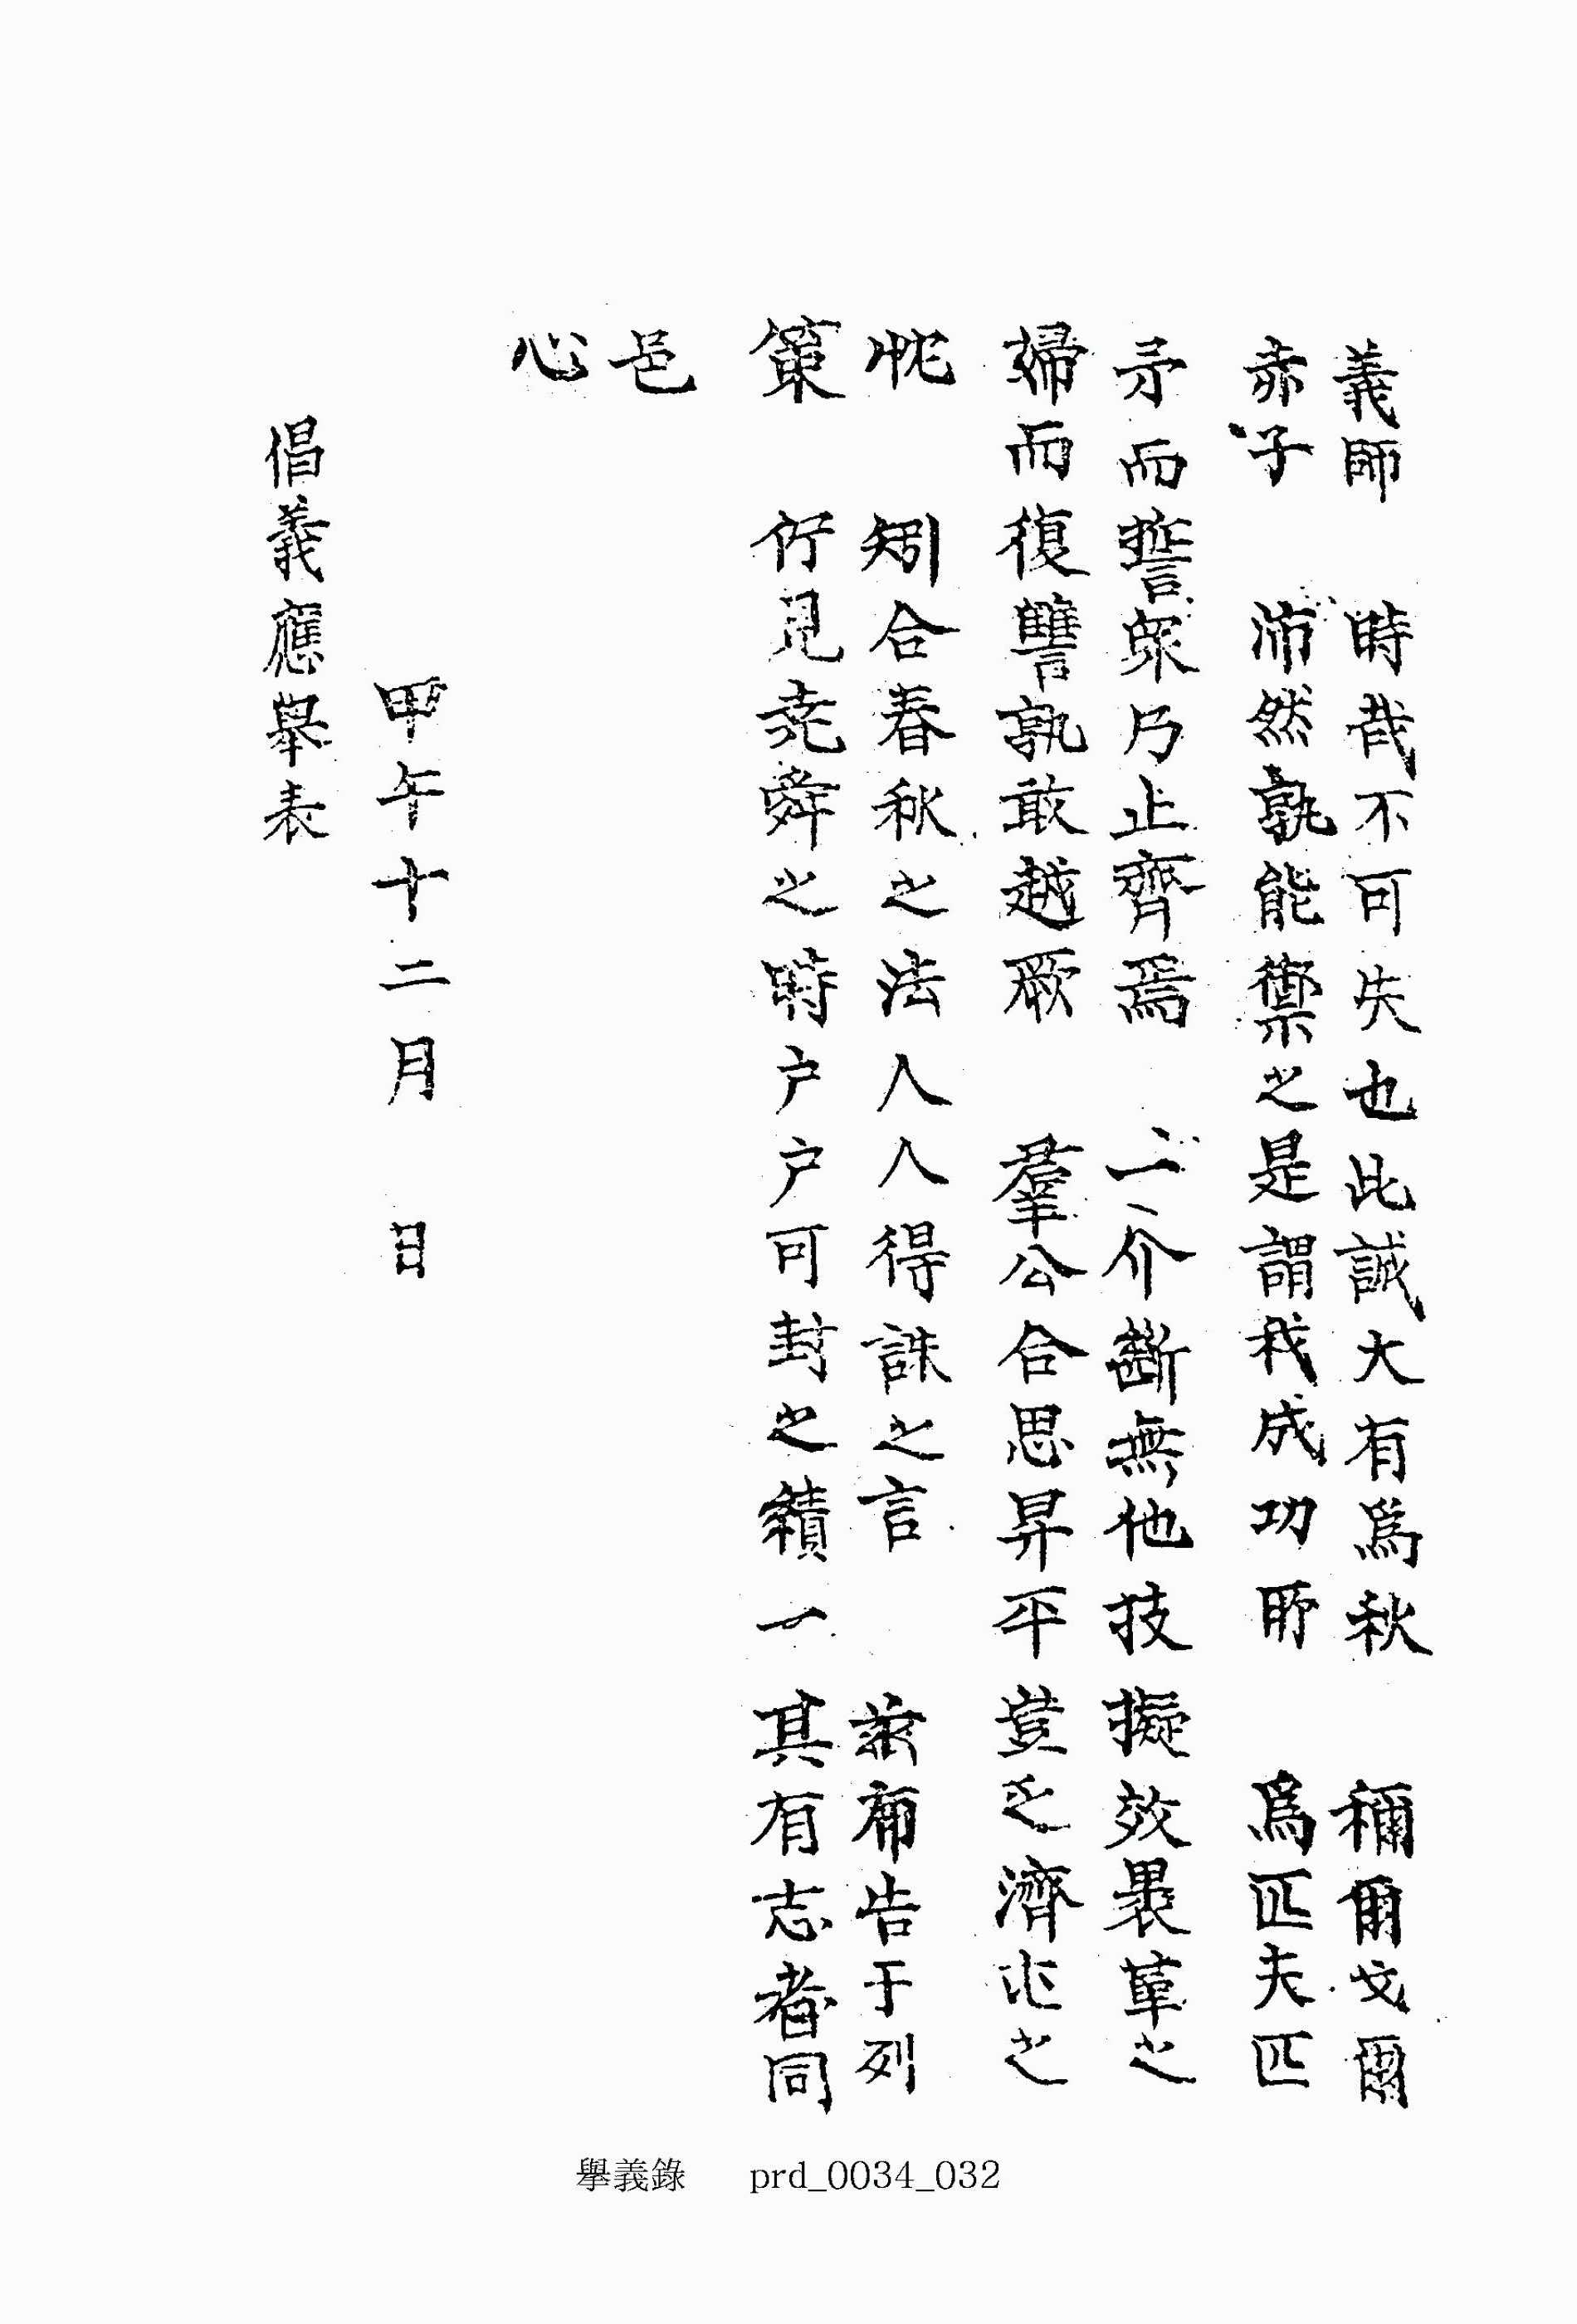 義師 時哉不可失也此誠大有爲秋 穪爾戈爾
赤子 沛然孰能禦之是謂我成功所 爲匹夫匹
矛而誓衆乃止齊焉 一介斷無他技擬效裹革之
婦而復讐孰敢越厥 羣公合思昇平豈乏濟屯之
忱 矧合春秋之法人人得誅之言 茲布告于列
策 佇見堯舜之時户户可封之績一 其有志者同
邑
心
甲午十二月 日
倡義應擧表
擧義錄 prd_0034_032